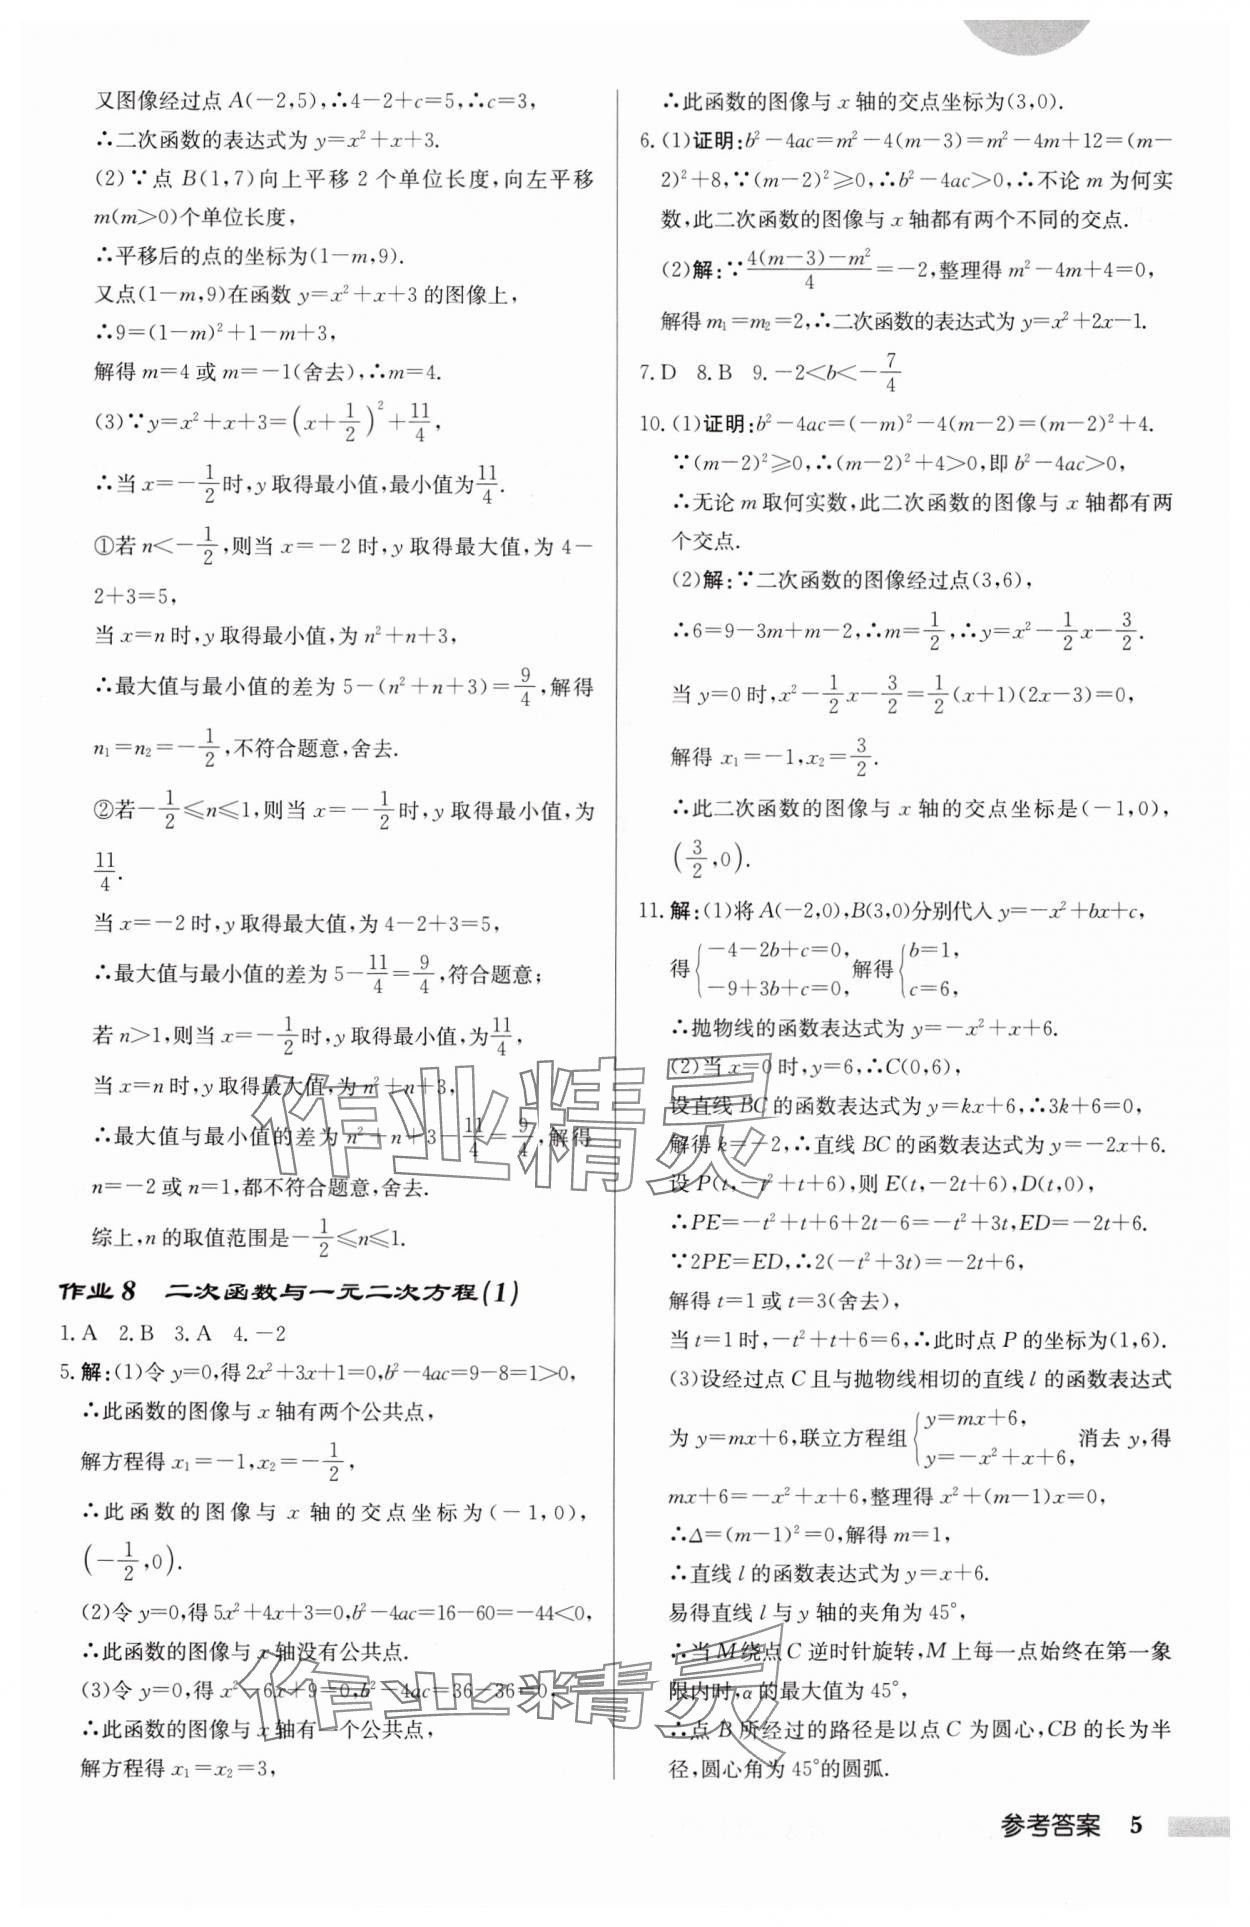 又图像经过点 A(-2,5),∴4-2+c=5,∴c=3,
∴二次函数的表达式为 y=x²+x+3.
(2)∵点 B(1,7)向上平移 2 个单位长度,向左平移
m(m>0)个单位长度,
∴平移后的点的坐标为(1-m,9).
又点(1-m,9)在函数 y=x²+x+3 的图像上,
∴9=(1-m)²+1-m+3,
解得 m=4 或 m=-1(舍去),∴m=4.
(3)∵y=x²+x+3=(x+1/2)²+11/4,
∴当 x=-1/2时,y 取得最小值,最小值为11/4.
①若 n<-1/2,则当 x=-2 时,y 取得最大值,为 4-
2+3=5,
当 x=n 时,y 取得最小值,为 n²+n+3,
∴最大值与最小值的差为 5-(n²+n+3)=9/4,解得
n₁=n₂=-1/2,不符合题意,舍去.
②若-1/2≤n≤1,则当 x=-1/2时,y 取得最小值,为
11/4.
当 x=-2 时,y 取得最大值,为 4-2+3=5,
∴最大值与最小值的差为 5-11/4=9/4,符合题意;
若 n>1,则当 x=-1/2时,y 取得最小值,为11/4,
当 x=n 时,y 取得最大值,为 n²+n+3,
∴最大值与最小值的差为 n²+n+3-11/4=9/4,解得
n=-2 或 n=1,都不符合题意,舍去.
综上,n 的取值范围是-1/2≤n≤1.
作业 8 二次函数与一元二次方程(1)
1. A 2. B 3. A 4. -2
5. 解:(1)令 y=0,得 2x²+3x+1=0,b²-4ac=9-8=1>0,
∴此函数的图像与 x 轴有两个公共点,
解方程得 x₁=-1,x₂=-1/2,
∴此函数的图像与 x 轴的交点坐标为(-1,0),
(-1/2,0).
(2)令 y=0,得 5x²+4x+3=0,b²-4ac=16-60=-44<0,
∴此函数的图像与 x 轴没有公共点.
(3)令 y=0,得 x²-6x+9=0,b²-4ac=36-36=0,
∴此函数的图像与 x 轴有一个公共点,
解方程得 x₁=x₂=3,
∴此函数的图像与 x 轴的交点坐标为(3,0).
6. (1)证明:b²-4ac=m²-4(m-3)=m²-4m+12=(m-
2)²+8,∵(m-2)²≥0,∴b²-4ac>0,∴不论 m 为何实
数,此二次函数的图像与 x 轴都有两个不同的交点.
(2)解:∵4(m-3)-m²/4=-2,整理得 m²-4m+4=0,
解得 m₁=m₂=2,∴二次函数的表达式为 y=x²+2x-1.
7. D 8. B 9. -2<b<-7/4
10. (1)证明:b²-4ac=(-m)²-4(m-2)=(m-2)²+4.
∵(m-2)²≥0,∴(m-2)²+4>0,即 b²-4ac>0,
∴无论 m 取何实数,此二次函数的图像与 x 轴都有两
个交点.
(2)解:∵二次函数的图像经过点(3,6),
∴6=9-3m+m-2,∴m=1/2,∴y=x²-1/2x-3/2.
当 y=0 时,x²-1/2x-3/2=1/2(x+1)(2x-3)=0,
解得 x₁=-1,x₂=3/2.
∴此二次函数的图像与 x 轴的交点坐标是(-1,0),
(3/2,0).
11. 解:(1)将 A(-2,0),B(3,0)分别代入 y=-x²+bx+c,
得{-4-2b+c=0, -9+3b+c=0,解得{b=1, c=6,
∴抛物线的函数表达式为 y=-x²+x+6.
(2)当 x=0 时,y=6,∴C(0,6),
设直线 BC 的函数表达式为 y=kx+6,∴3k+6=0,
解得 k=-2,∴直线 BC 的函数表达式为 y=-2x+6.
设 P(t,-t²+t+6),则 E(t,-2t+6),D(t,0),
∴PE=-t²+t+6+2t-6=-t²+3t,ED=-2t+6.
∵2PE=ED,∴2(-t²+3t)=-2t+6,
解得 t=1 或 t=3(舍去),
当 t=1 时,-t²+t+6=6,∴此时点 P 的坐标为(1,6).
(3)设经过点 C 且与抛物线相切的直线 l 的函数表达式
为 y=mx+6,联立方程组{y=mx+6, y=-x²+x+6,消去 y,得
mx+6=-x²+x+6,整理得 x²+(m-1)x=0,
∴Δ=(m-1)²=0,解得 m=1,
∴直线 l 的函数表达式为 y=x+6.
易得直线 l 与 y 轴的夹角为 45°,
∴当 M 绕点 C 逆时针旋转,M 上每一点始终在第一象
限内时,α 的最大值为 45°,
∴点 B 所经过的路径是以点 C 为圆心,CB 的长为半
径,圆心角为 45°的圆弧.
作业精灵
作业精灵
参考答案 5